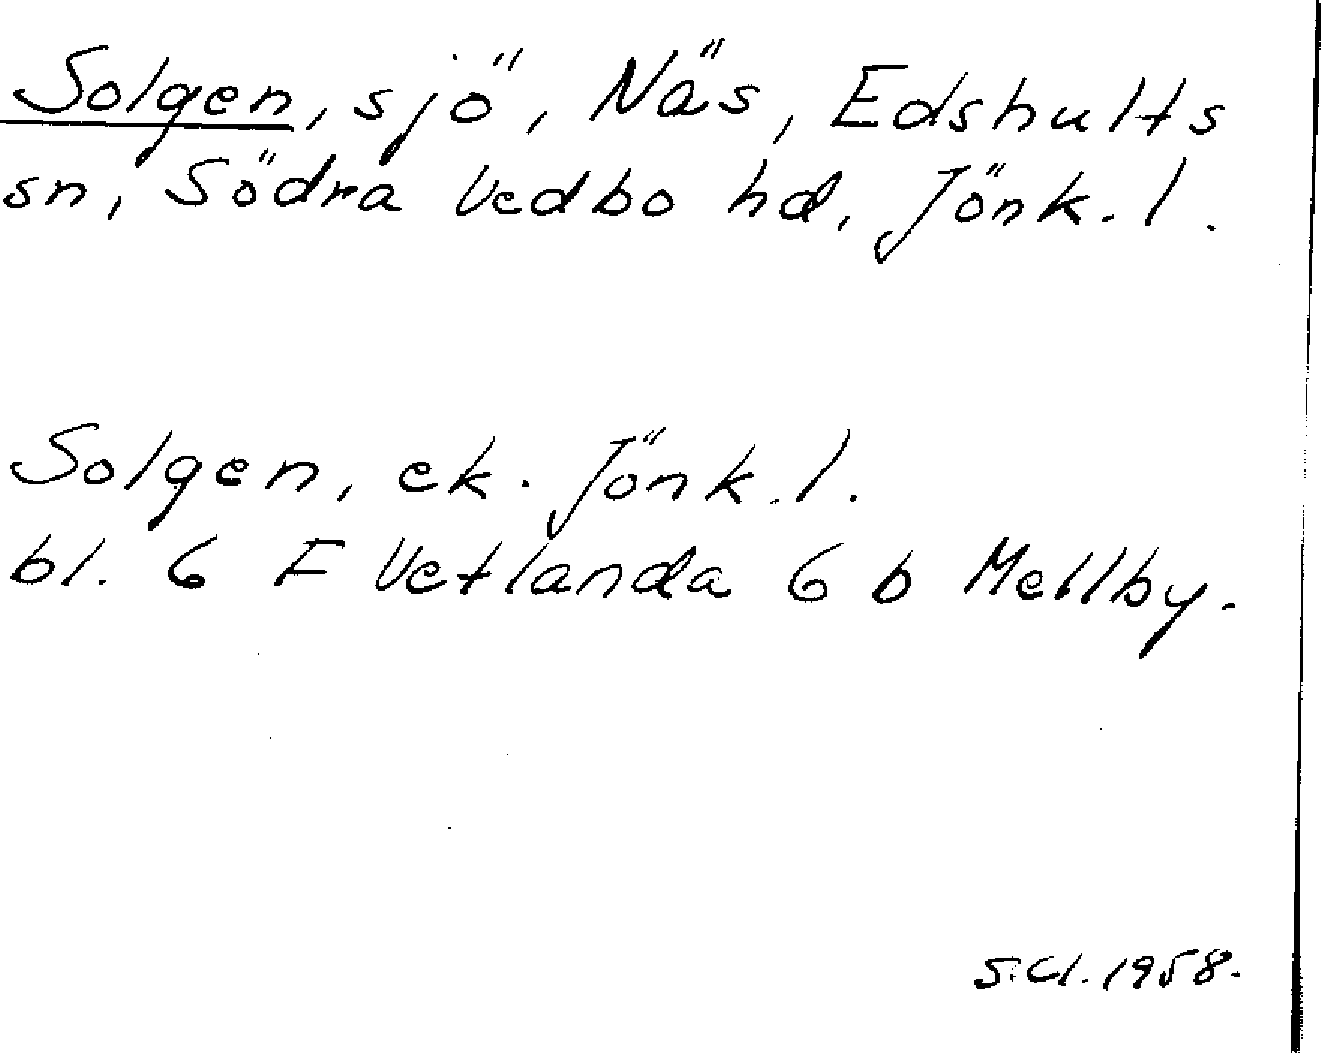 Solgen, sjö, Näs, Edshults
sn, Södra Vedbo hd, Jönk. l.
Solgen, ek. Jönk. l.
bl. 6 F Vetlanda 6 b Mellby.
S.Cl. 1958.